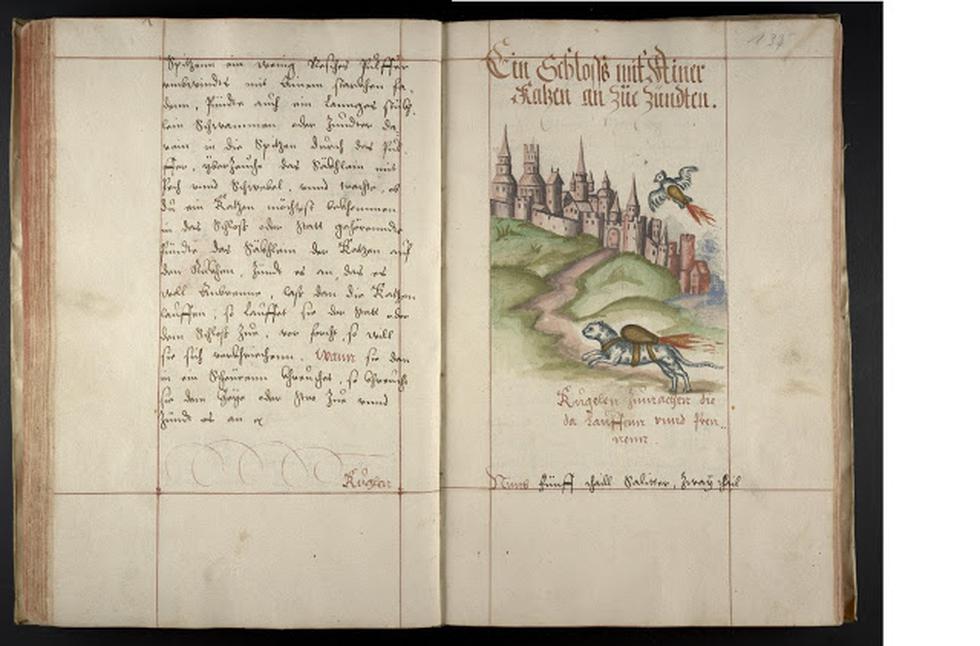 Spitzenn ein wenig Resches Pulffer
umbwindts mit Einem starckhen fa¬
denn, Pündte auch ein Lannges stückh
lein Schwammen oder Zündter da¬
rein in die Spitzen durch das Pul
ffer, yberzeuche das Säckhlein mit
Pech unnd Schwebel, unnd trachte, ob
du ein Katzen möchtest bekhommen
in das Schloß oder Statt gehörenndt
pündte das Säckhlein der Katzen auf
den Ruckhen, Zündt es an, das es
woll Anbrenne, laß dan die Katzen
lauffen, so lauffet sie der Statt oder
dem Schloß Zue, vor forcht, so will
sie sich verkhriechenn. Wann sie dan
in ein Scheürenn khreuchet, so khreucht
sie dem Heye oder Stro Zue unnd
Zündt es an
Kuglen
137
Ein Schloss mit Einer
Katzen an Züe Zündten.
Kugelen Zumachen die
da Lauffenn unnd Pren¬
nenn.
Nimb fünff thaill Saliter, Zway thail